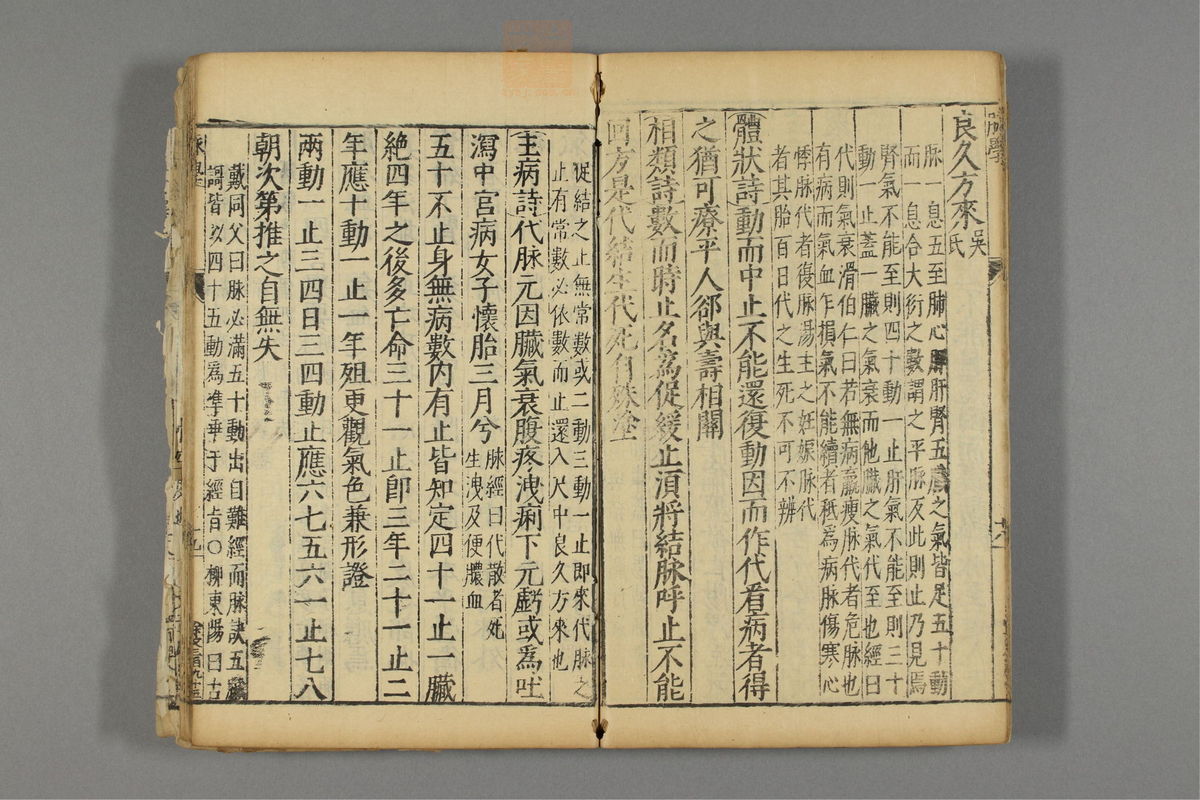 良久方來吳氏
脉一息五至肺心脾肝腎五臟之氣皆足五十動
而一息合大衍之數謂之平脉反此則止乃見焉
腎氣不能至則四十動一止肝氣不能至則三十
動一止蓋一臟之氣衰而他臟之氣代至也經曰
代則氣衰滑伯仁曰若無病羸瘦脉代者危脉也
有病而氣血乍損氣不能續者秪爲病脉傷寒心
悸脉代者復脉湯主之妊娠脉代
者其胎百日代之生死不可不辨
體狀詩動而中止不能還復動因而作代看病者得
之猶可療平人郤與壽相關
相類詩數而時止名爲促緩止須將結脉呼止不能
回方是代結生代死自殊塗
促結之止無常數或二動三動一止即來代脉之
止有常數必依數而止還入尺中良久方來也
主病詩代脉元因臟氣衰腹疼洩痢下元虧或爲吐
瀉中宮病女子懷胎三月兮脉經曰代散者死
生洩及便膿血
五十不止身無病數内有止皆知定四十一止一臟
絶四年之後多亡命三十一止即三年二十一止二
年應十動一止一年殂更觀氣色兼形證
兩動一止三四日三四動止應六七五六一止七八
朝次第推之自無失
戴同父曰脉必滿五十動出自難經而脉訣五臟
謌皆以四十五動爲準乖于經旨○柳東陽曰古